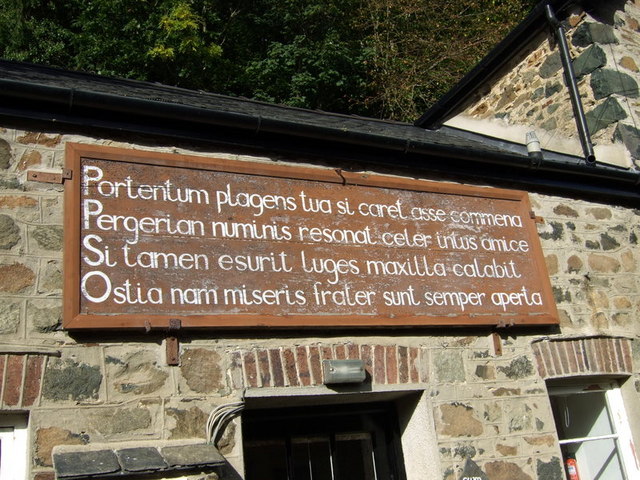 Portentum plagens tua si caret asse commena
Pergerian numinis resonat celer intus amice
Si tamen esurit luges maxilla calabit
Ostia nam miseris frater sunt semper aperta